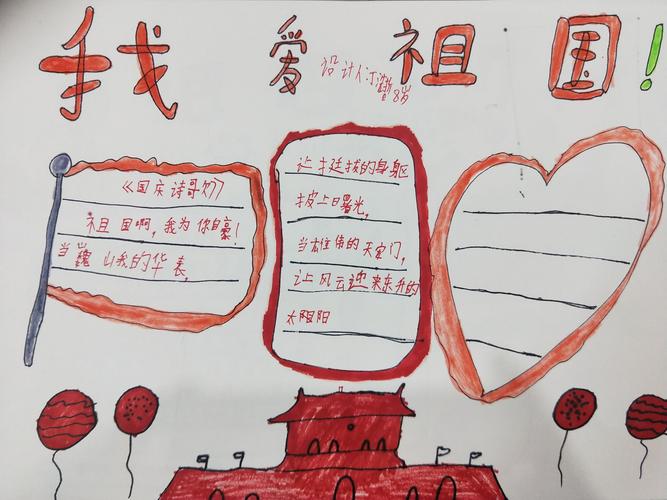 我爱祖国!
设计人:江
8岁
《国庆诗歌》
祖国啊,我为你自豪!
当巍山我的华表,
让挺拔的身躯
披上曙光,
当雄伟的天安门,
让风云迎来东升的
太阻阳